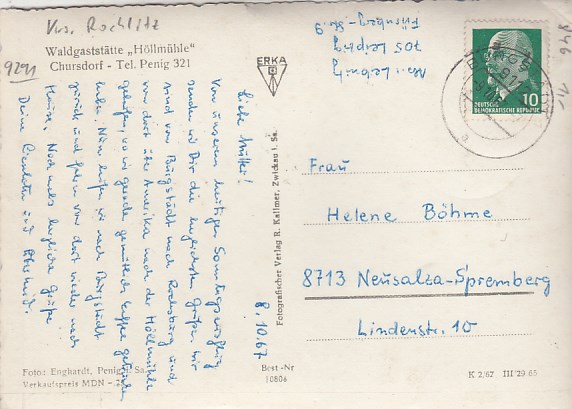 Krs. Rochlitz
Waldgaststätte „Höllmühle"
Chursdorf - Tel. Penig 321
9291
ERKA
8.10.67
Liebe Mutter!
Von unserem heutigen Sonntagsausflug
senden wir Dir die herzlichsten Grüße. Wir
sind von Burgstädt nach Rochsburg und
von dort über Amerika nach der Höllmühle
gelaufen, wo wir gerade gemütlich Kaffee getrunken
haben. Nun laufen wir nach Burgstädt
zurück und fahren von dort wieder nach
Hause. Nochmals herzliche Grüße
Deine und
705 Leipzig
Fotografischer Verlag R. Kallmer, Zwickau i. Sa.
DEUTSCHE
DEMOKRATISCHE REPUBLIK
10
846
Frau
Helene Böhme
8713 Neusalza-Spremberg
Lindenstr. 10
Foto: Enghardt, Penig i. Sa.
Verkaufspreis MDN
Best.-Nr
10806
K 2/67 III/29/65